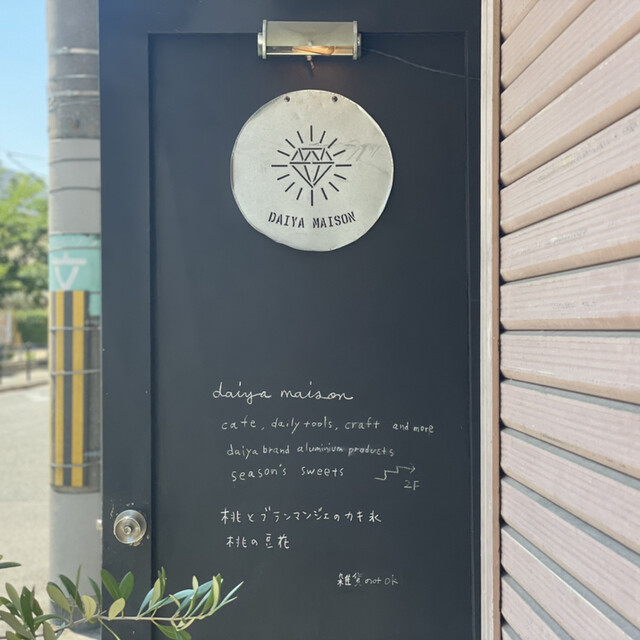 DAIYA MAISON
daiya maison
cafe, daily tools, craft and more
daiya brand aluminium products
season's sweets
2F
桃とブランマンジェのカキ氷
桃の豆花
雑貨のみ ok